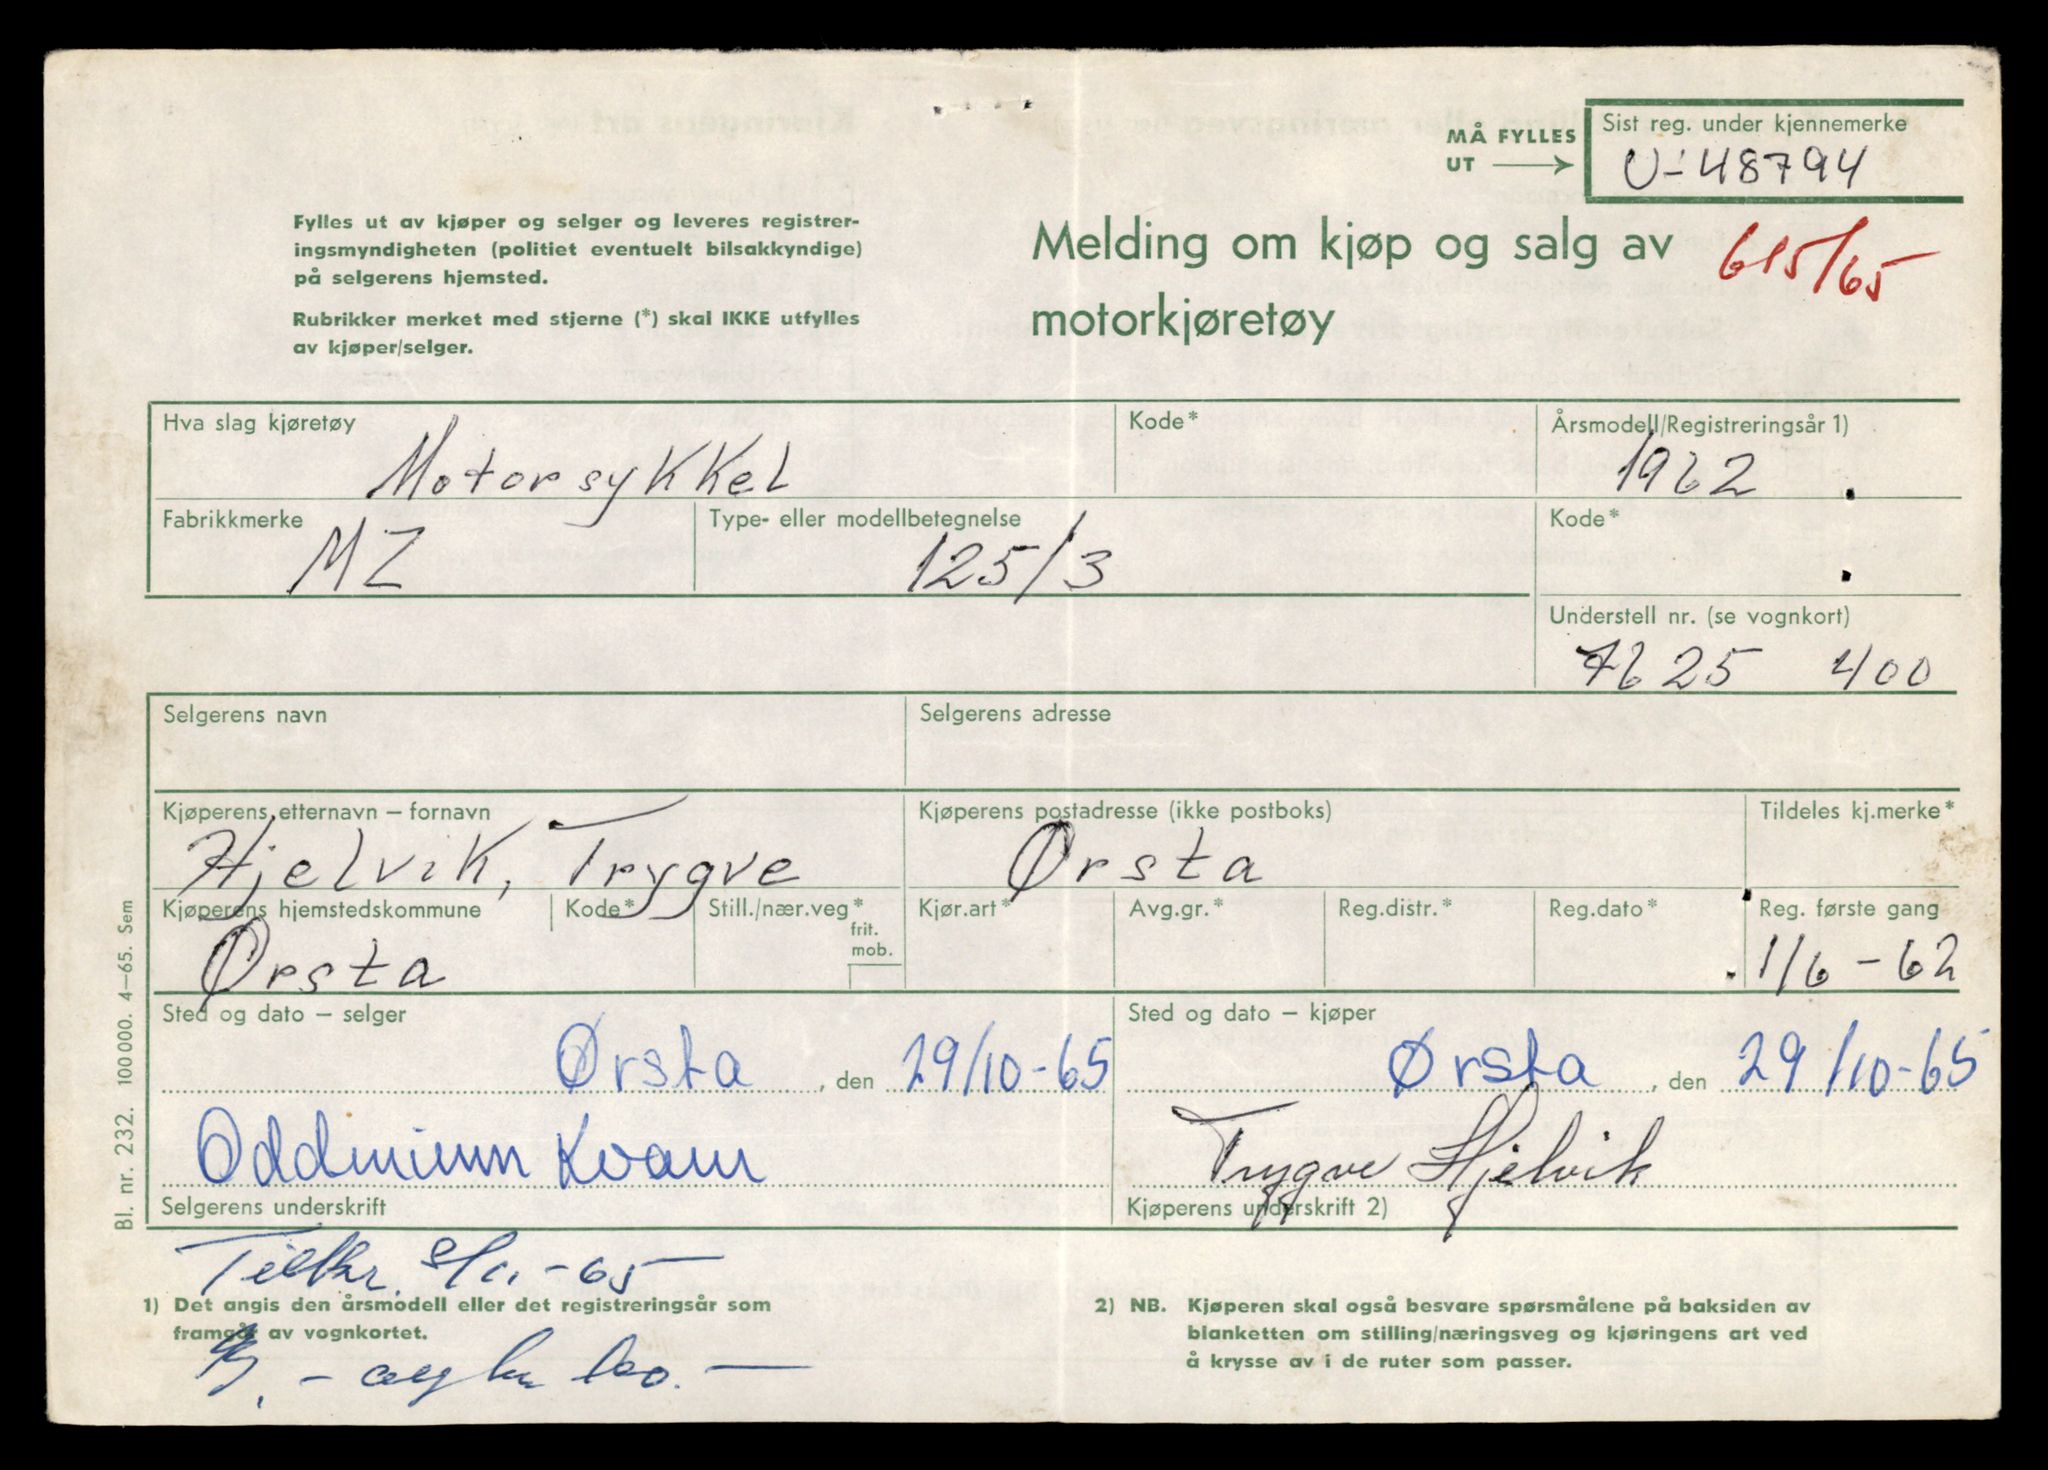 MÅ FYLLES
UT
Sist reg. under kjennemerke
U-48794
Fylles ut av kjøper og selger og leveres registrer-
ingsmyndigheten (politiet eventuelt bilsakkyndige)
på selgerens hjemsted.
Rubrikker merket med stjerne (*) skal IKKE utfylles
av kjøper/selger.
Melding om kjøp og salg av
motorkjøretøy
615/65
Hva slag kjøretøy
Motorsykkel
Kode*
Årsmodell/Registreringsår 1)
1962
Fabrikkmerke
MZ
Type- eller modellbetegnelse
125/3
Kode*
Understell nr. (se vognkort)
7625 400
Selgerens navn
Selgerens adresse
Kjøperens etternavn – fornavn
Hjelvik, Trygve
Kjøperens postadresse (ikke postboks)
Ørsta
Tildeles kj.merke*
Kjøperens hjemstedskommune
Ørsta
Kode*
Still./nær.veg*
frit.
mob.
Kjør.art*
Avg.gr.*
Reg.distr.*
Reg.dato*
Reg. første gang
1/6-62
Sted og dato – selger
Ørsta, den 29/10-65
Sted og dato – kjøper
Ørsta, den 29/10-65
Oddmunn Kvam
Selgerens underskrift
Trygve Hjelvik
Kjøperens underskrift 2)
1) Det angis den årsmodell eller det registreringsår som
framgår av vognkortet.
2) NB. Kjøperen skal også besvare spørsmålene på baksiden av
blanketten om stilling/næringsveg og kjøringens art ved
å krysse av i de ruter som passer.
Bl. nr. 232. 100 000. 4–65. Sem